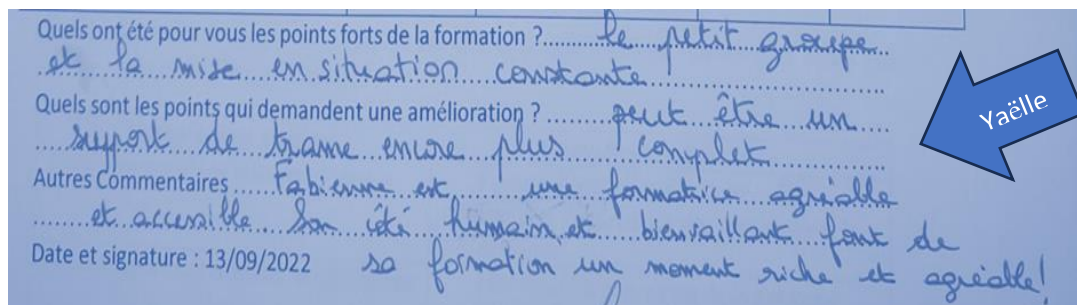 Quels ont été pour vous les points forts de la formation ? le petit groupe
et la mise en situation constante
Quels sont les points qui demandent une amélioration ? peut être un
support de trame encore plus complet
Yaëlle
Autres Commentaires Fabienne est une formatrice agréable
et accessible Son côté humain et bienvaillant font de
Date et signature : 13/09/2022 sa formation un moment riche et agréable!